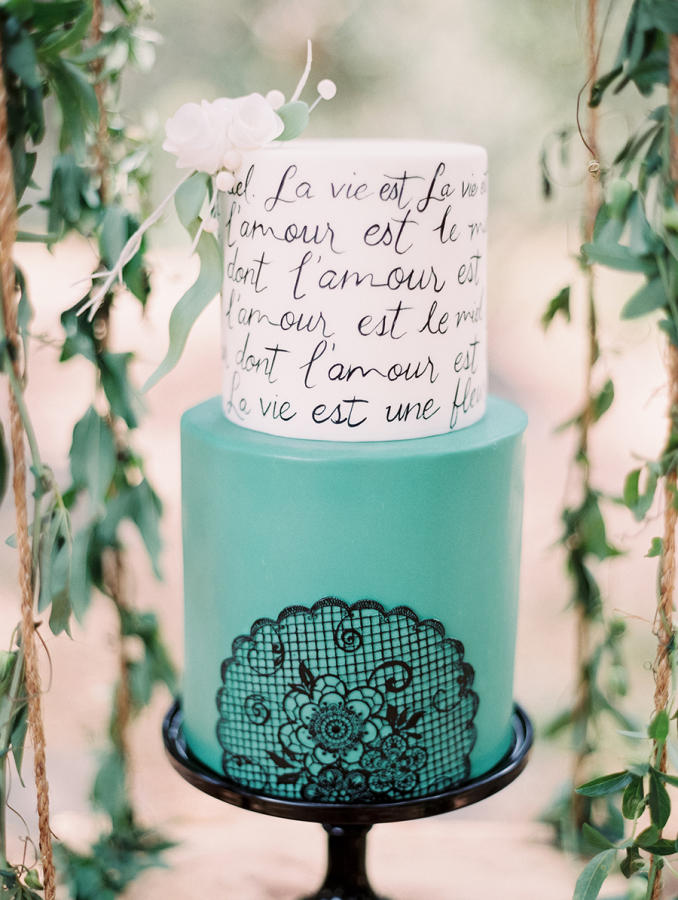 La vie est La vie
l'amour est le
dont l'amour est
l'amour est le miel
dont l'amour est
La vie est une